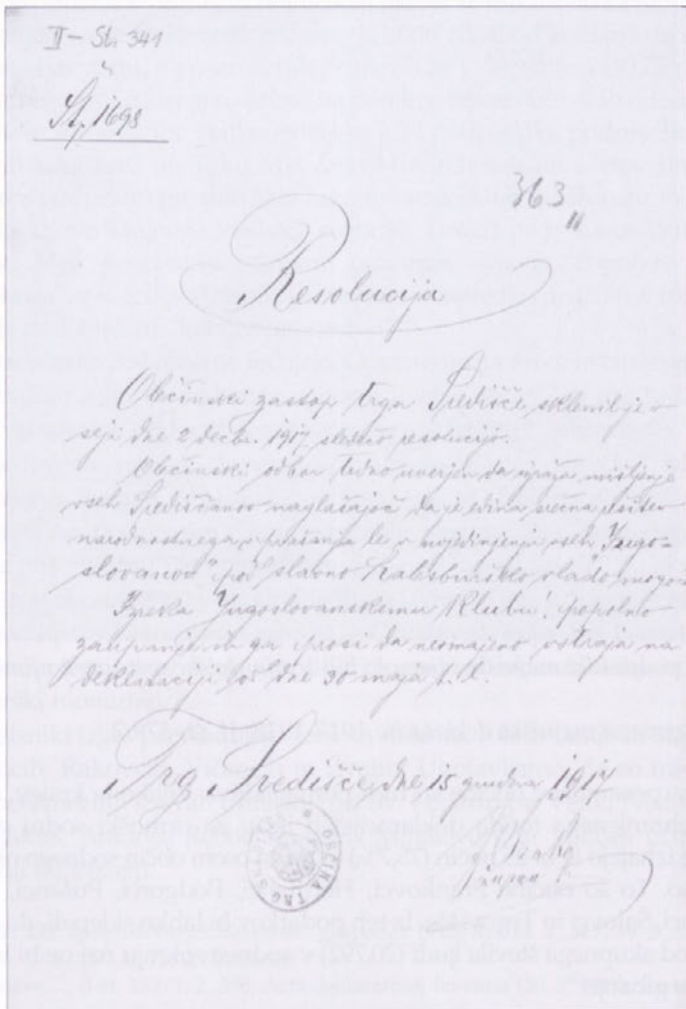 II - St. 341
Št. 1698
363
II
Resolucija
Občinski zastop trga Središče sklenil je v
seji dne 2 decbr. 1917 sledečo resolucijo.
Občinski odbor trdno uverjen da izraža mišljenje
vseh Središčanov naglašajoč da je edina srečna rešitev
narodnostnega vprašanja le v ujedinjenju vseh Jugo-
slovanov pod slavno habsburško vlado mogoča
Izreka "Jugoslovanskemu klubu" popolno
zaupanje in ga prosi da neomajeno vstraja na
deklaraciji od dne 30 maja t. l.
Trg Središče, dne 15 grudna 1917
župan
OBČINA TRG